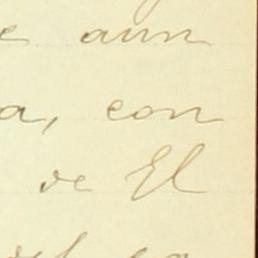 e aun
a, con
de El
del